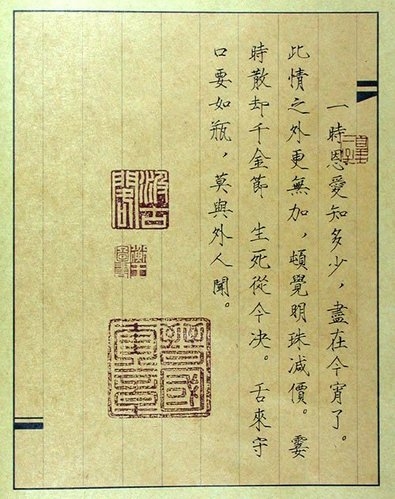 一時恩愛知多少，盡在今宵了。
此情之外更無加，頓覺明珠減價。霎
時散却千金節，生死從今决。舌來守
口要如瓶，莫與外人聞。